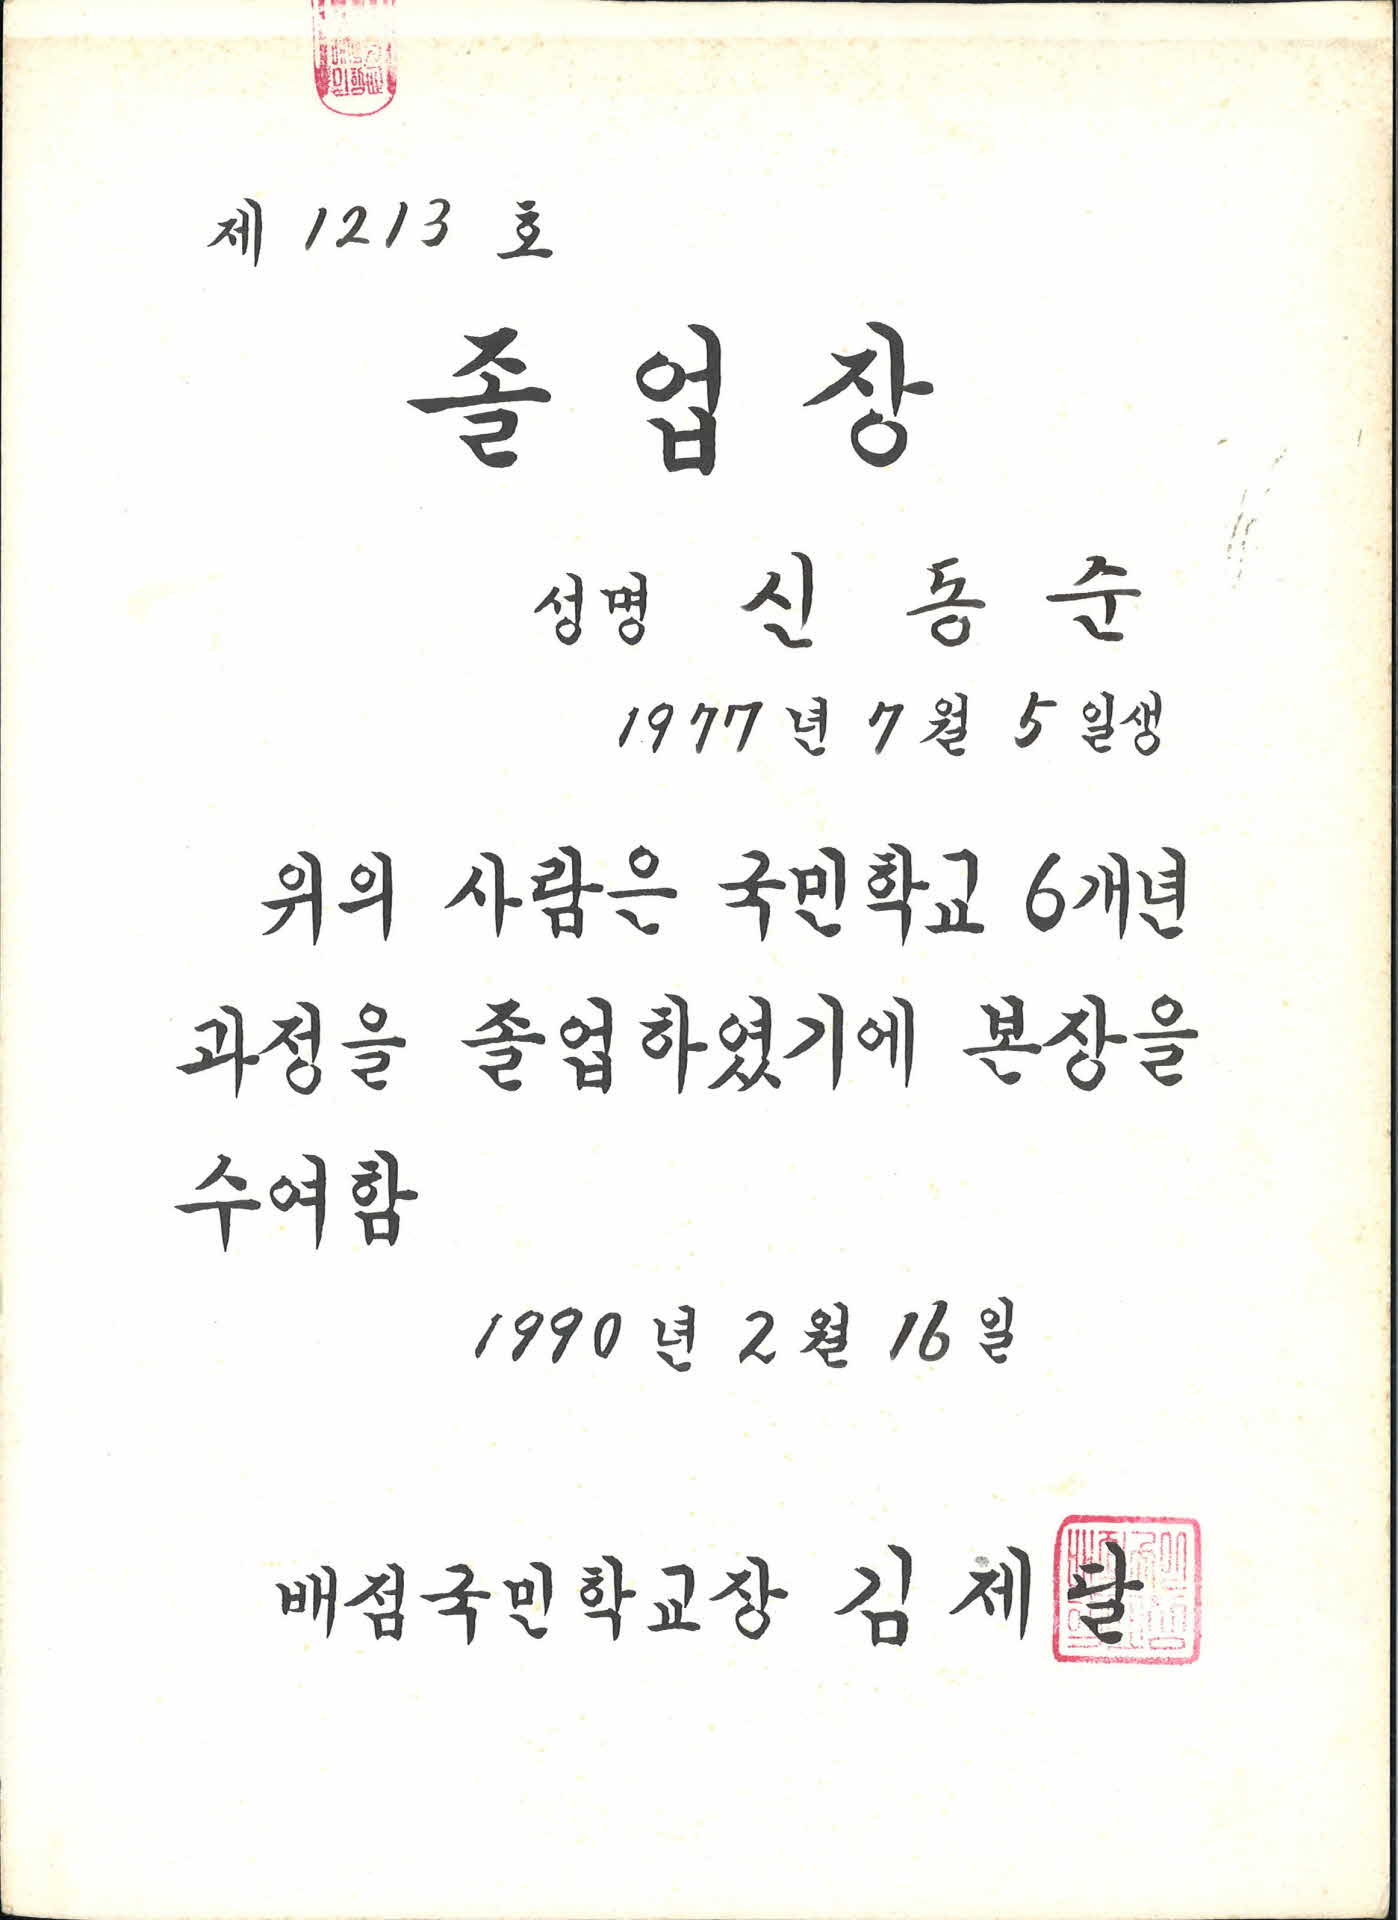 제 1213 호
졸업장
성명 신동순
1977년 7월 5일생
위의 사람은 국민학교 6개년
과정을 졸업하였기에 본장을
수여함
1990년 2월 16일
배점국민학교장 김제달